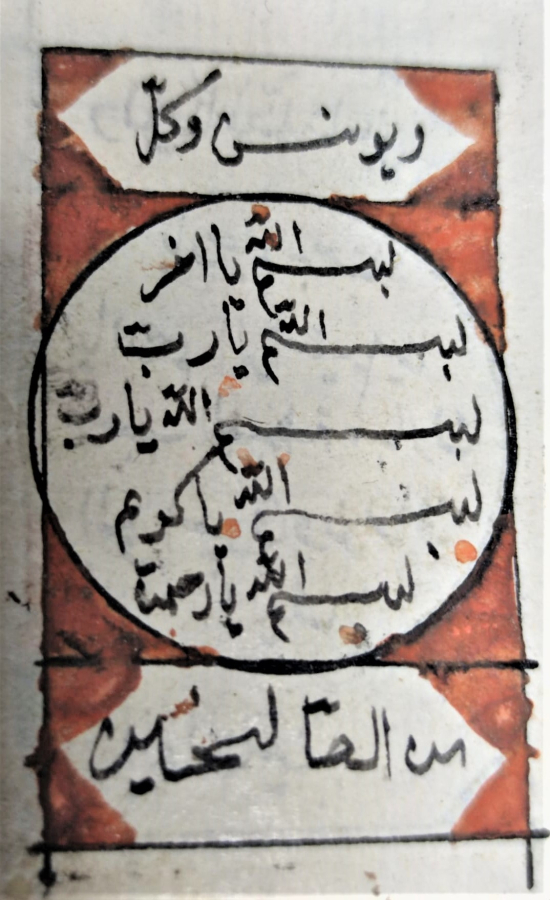 ويونس وكلّ
بسم اللّه يا اخر
بسم اللّه يا ربّ
بسم اللّه يا ربّ
بسم اللّه يا كريم
بسم اللّه يا رحمة
من الصا لحايين